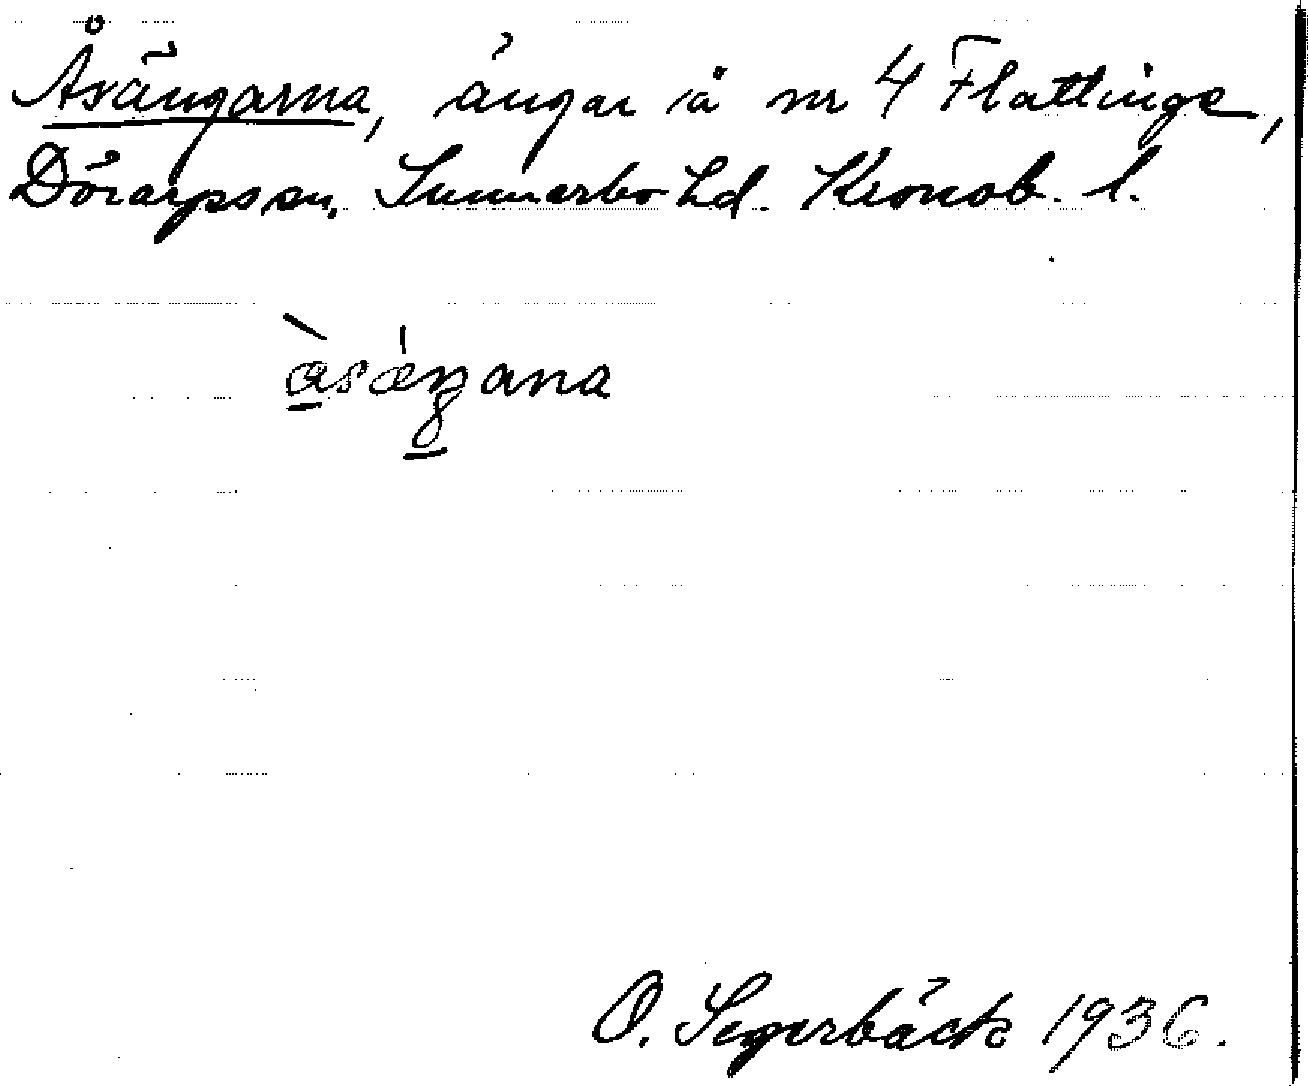 Åsängarna, ängar å nr 4 Flattinge,
Dörarps sn, Sunnerbo hd. Kronob. l.
àsǽŋana
O. Segerbäck 1936.